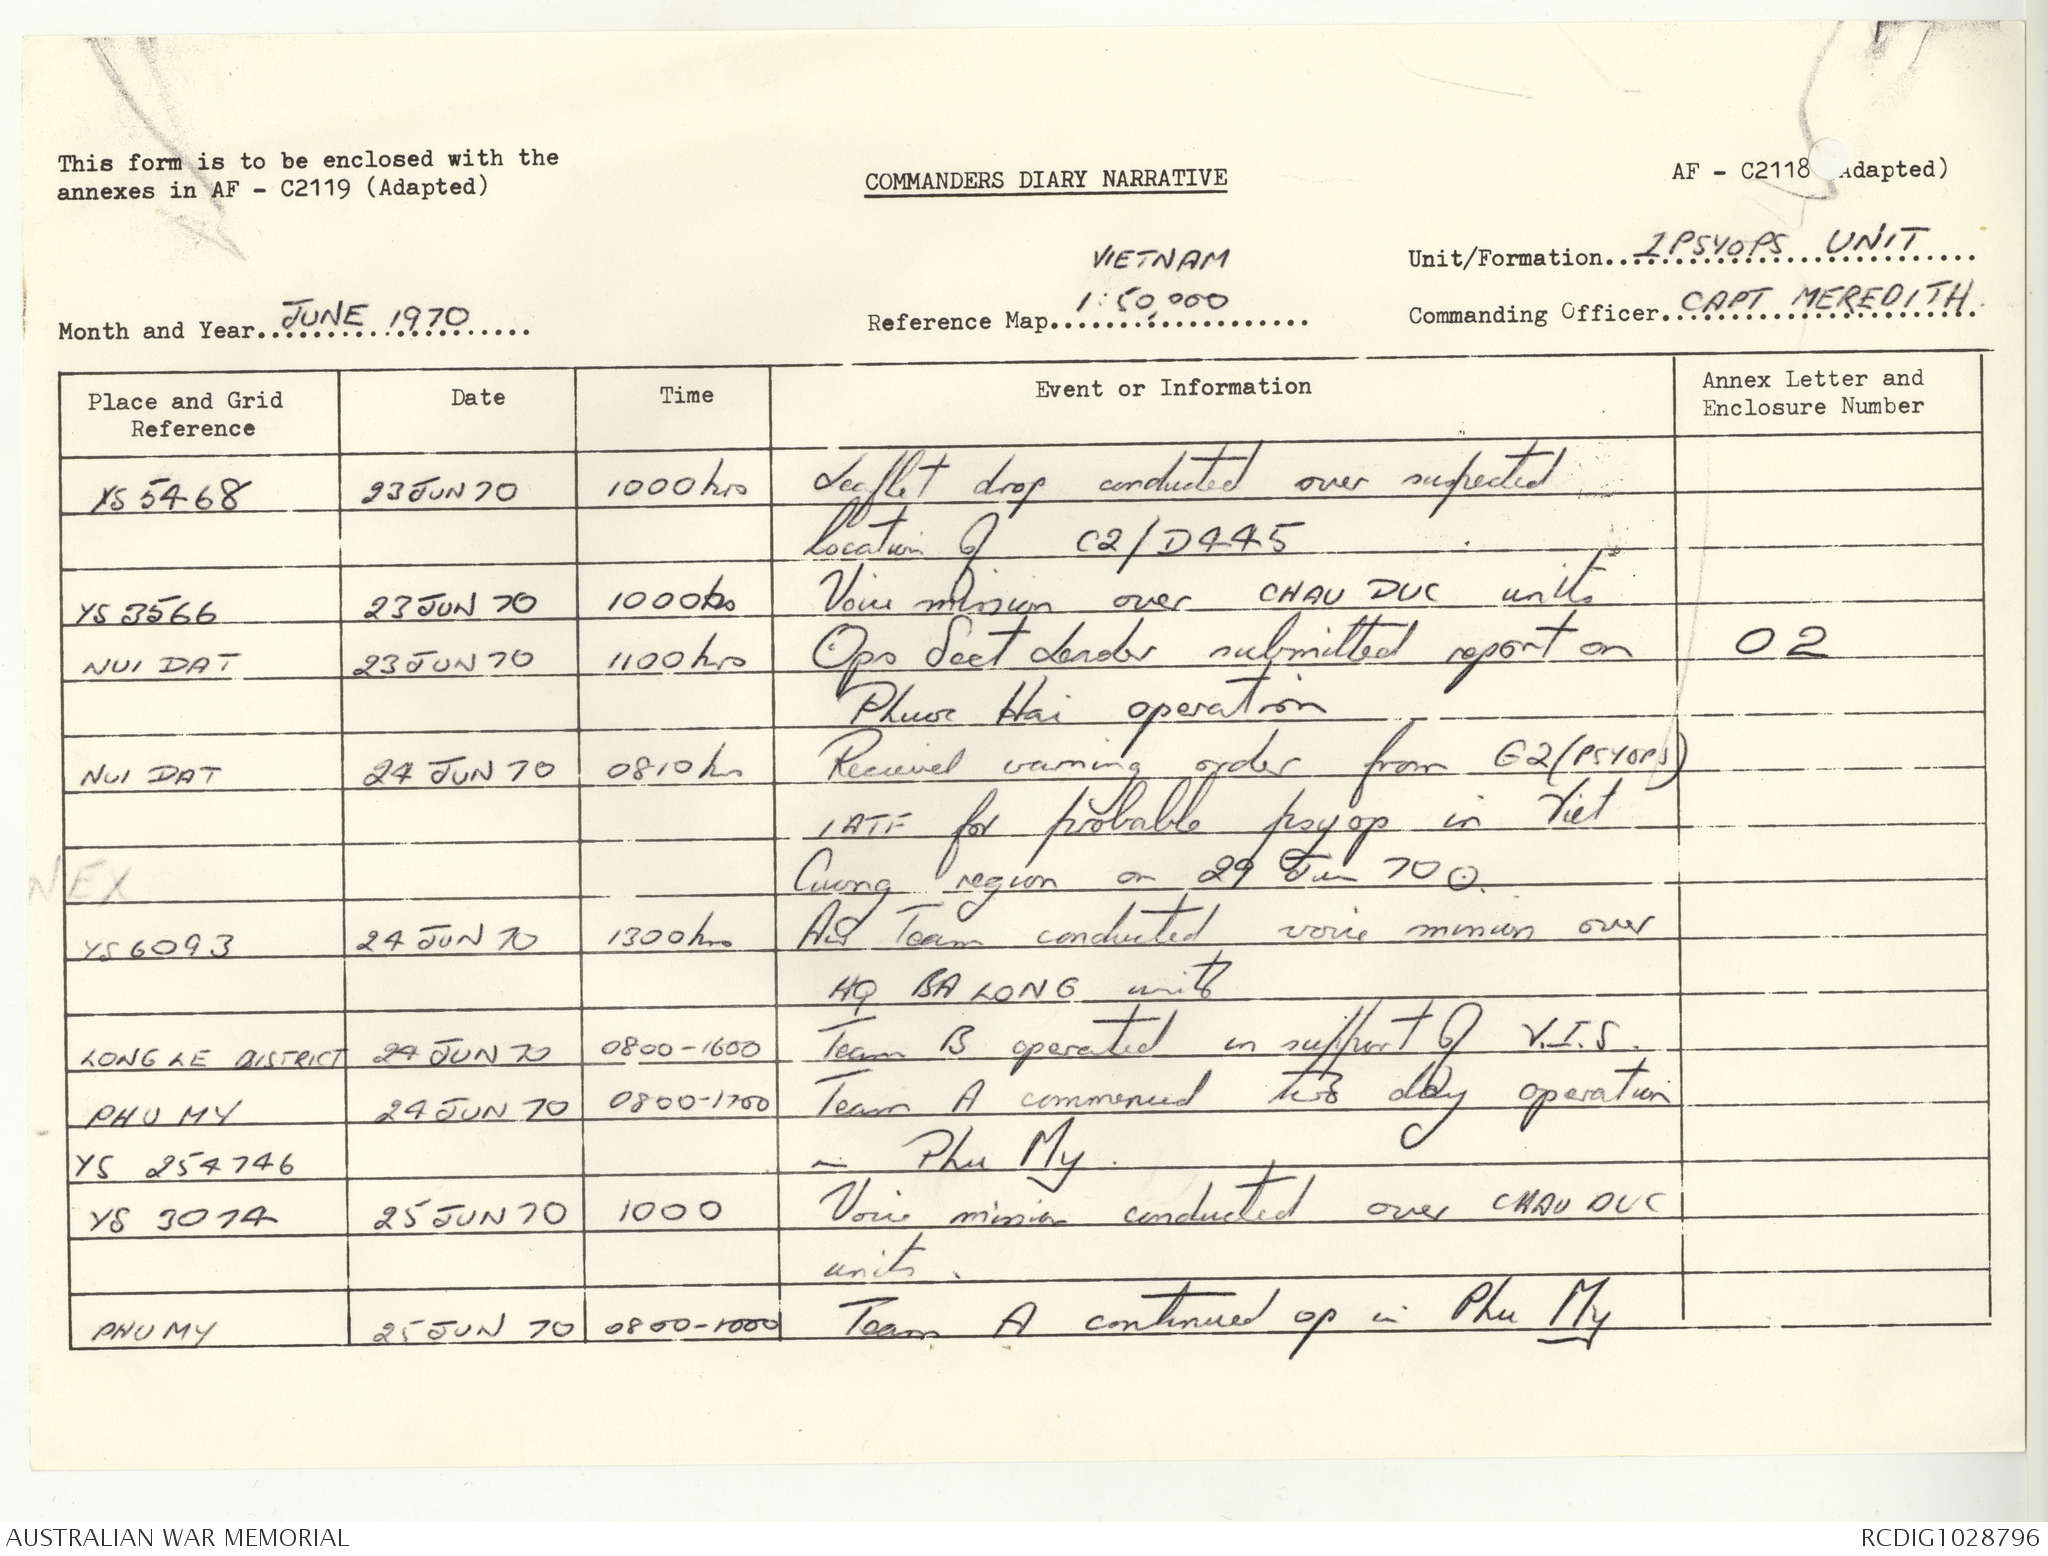 This form is to be enclosed with the
annexes in AF - C2119 (Adapted)
COMMANDERS DIARY NARRATIVE
AF - C2118 (Adapted)
Month and Year.. JUNE 1970
VIETNAM
Reference Map.. 1:50,000
Unit/Formation.. 1 PSYOPS UNIT
Commanding Officer.. CAPT MEREDITH.
Place and Grid Reference Date Time Event or Information Annex Letter and Enclosure Number
YS 5468 23 JUN 70 1000 hrs Leaflet drop conducted over suspected
location of C2/D445
YS 3566 23 JUN 70 1000hrs Voice mission over CHAU DUC units
NUI DAT 23 JUN 70 1100 hrs Ops Sect Leader submitted report on 02
Phuoc Hai operation
NUI DAT 24 JUN 70 0810 hrs Recieved warning order from G2 (PSYOPS)
1ATF for probable psyop in Viet
NEX Cuong region on 29 Jun 70.
YS 6093 24 JUN 70 1300 hrs Air Team conducted voice mission over
HQ BA LONG units
LONG LE DISTRICT 24 JUN 70 0800-1600 Team B operated in support of V.I.S.
PHU MY 24 JUN 70 0800-1700 Team A commenced two day operation
YS 254746 in Phu My.
YS 3074 25 JUN 70 1000 Voice mission conducted over CHAU DUC
units.
PHU MY 25 JUN 70 Team A continued op in Phu My
AUSTRALIAN WAR MEMORIAL
RCDIG1028796